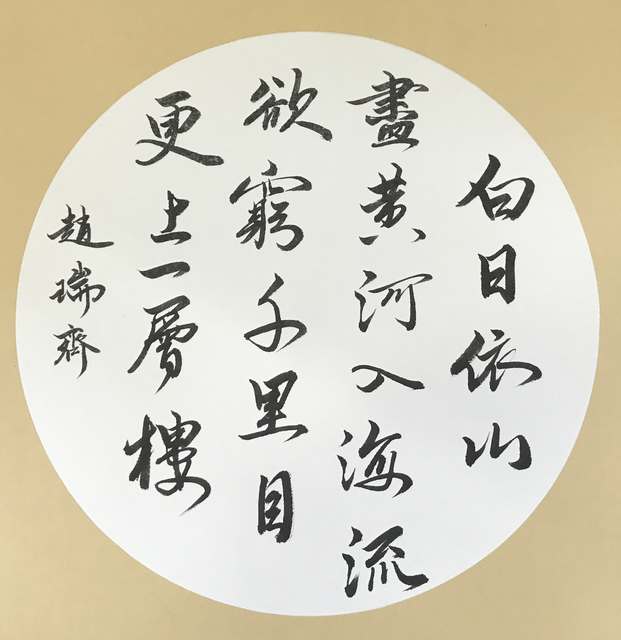 白日依山
盡黄河入海流
欲窮千里目
更上一層樓
趙瑞齊